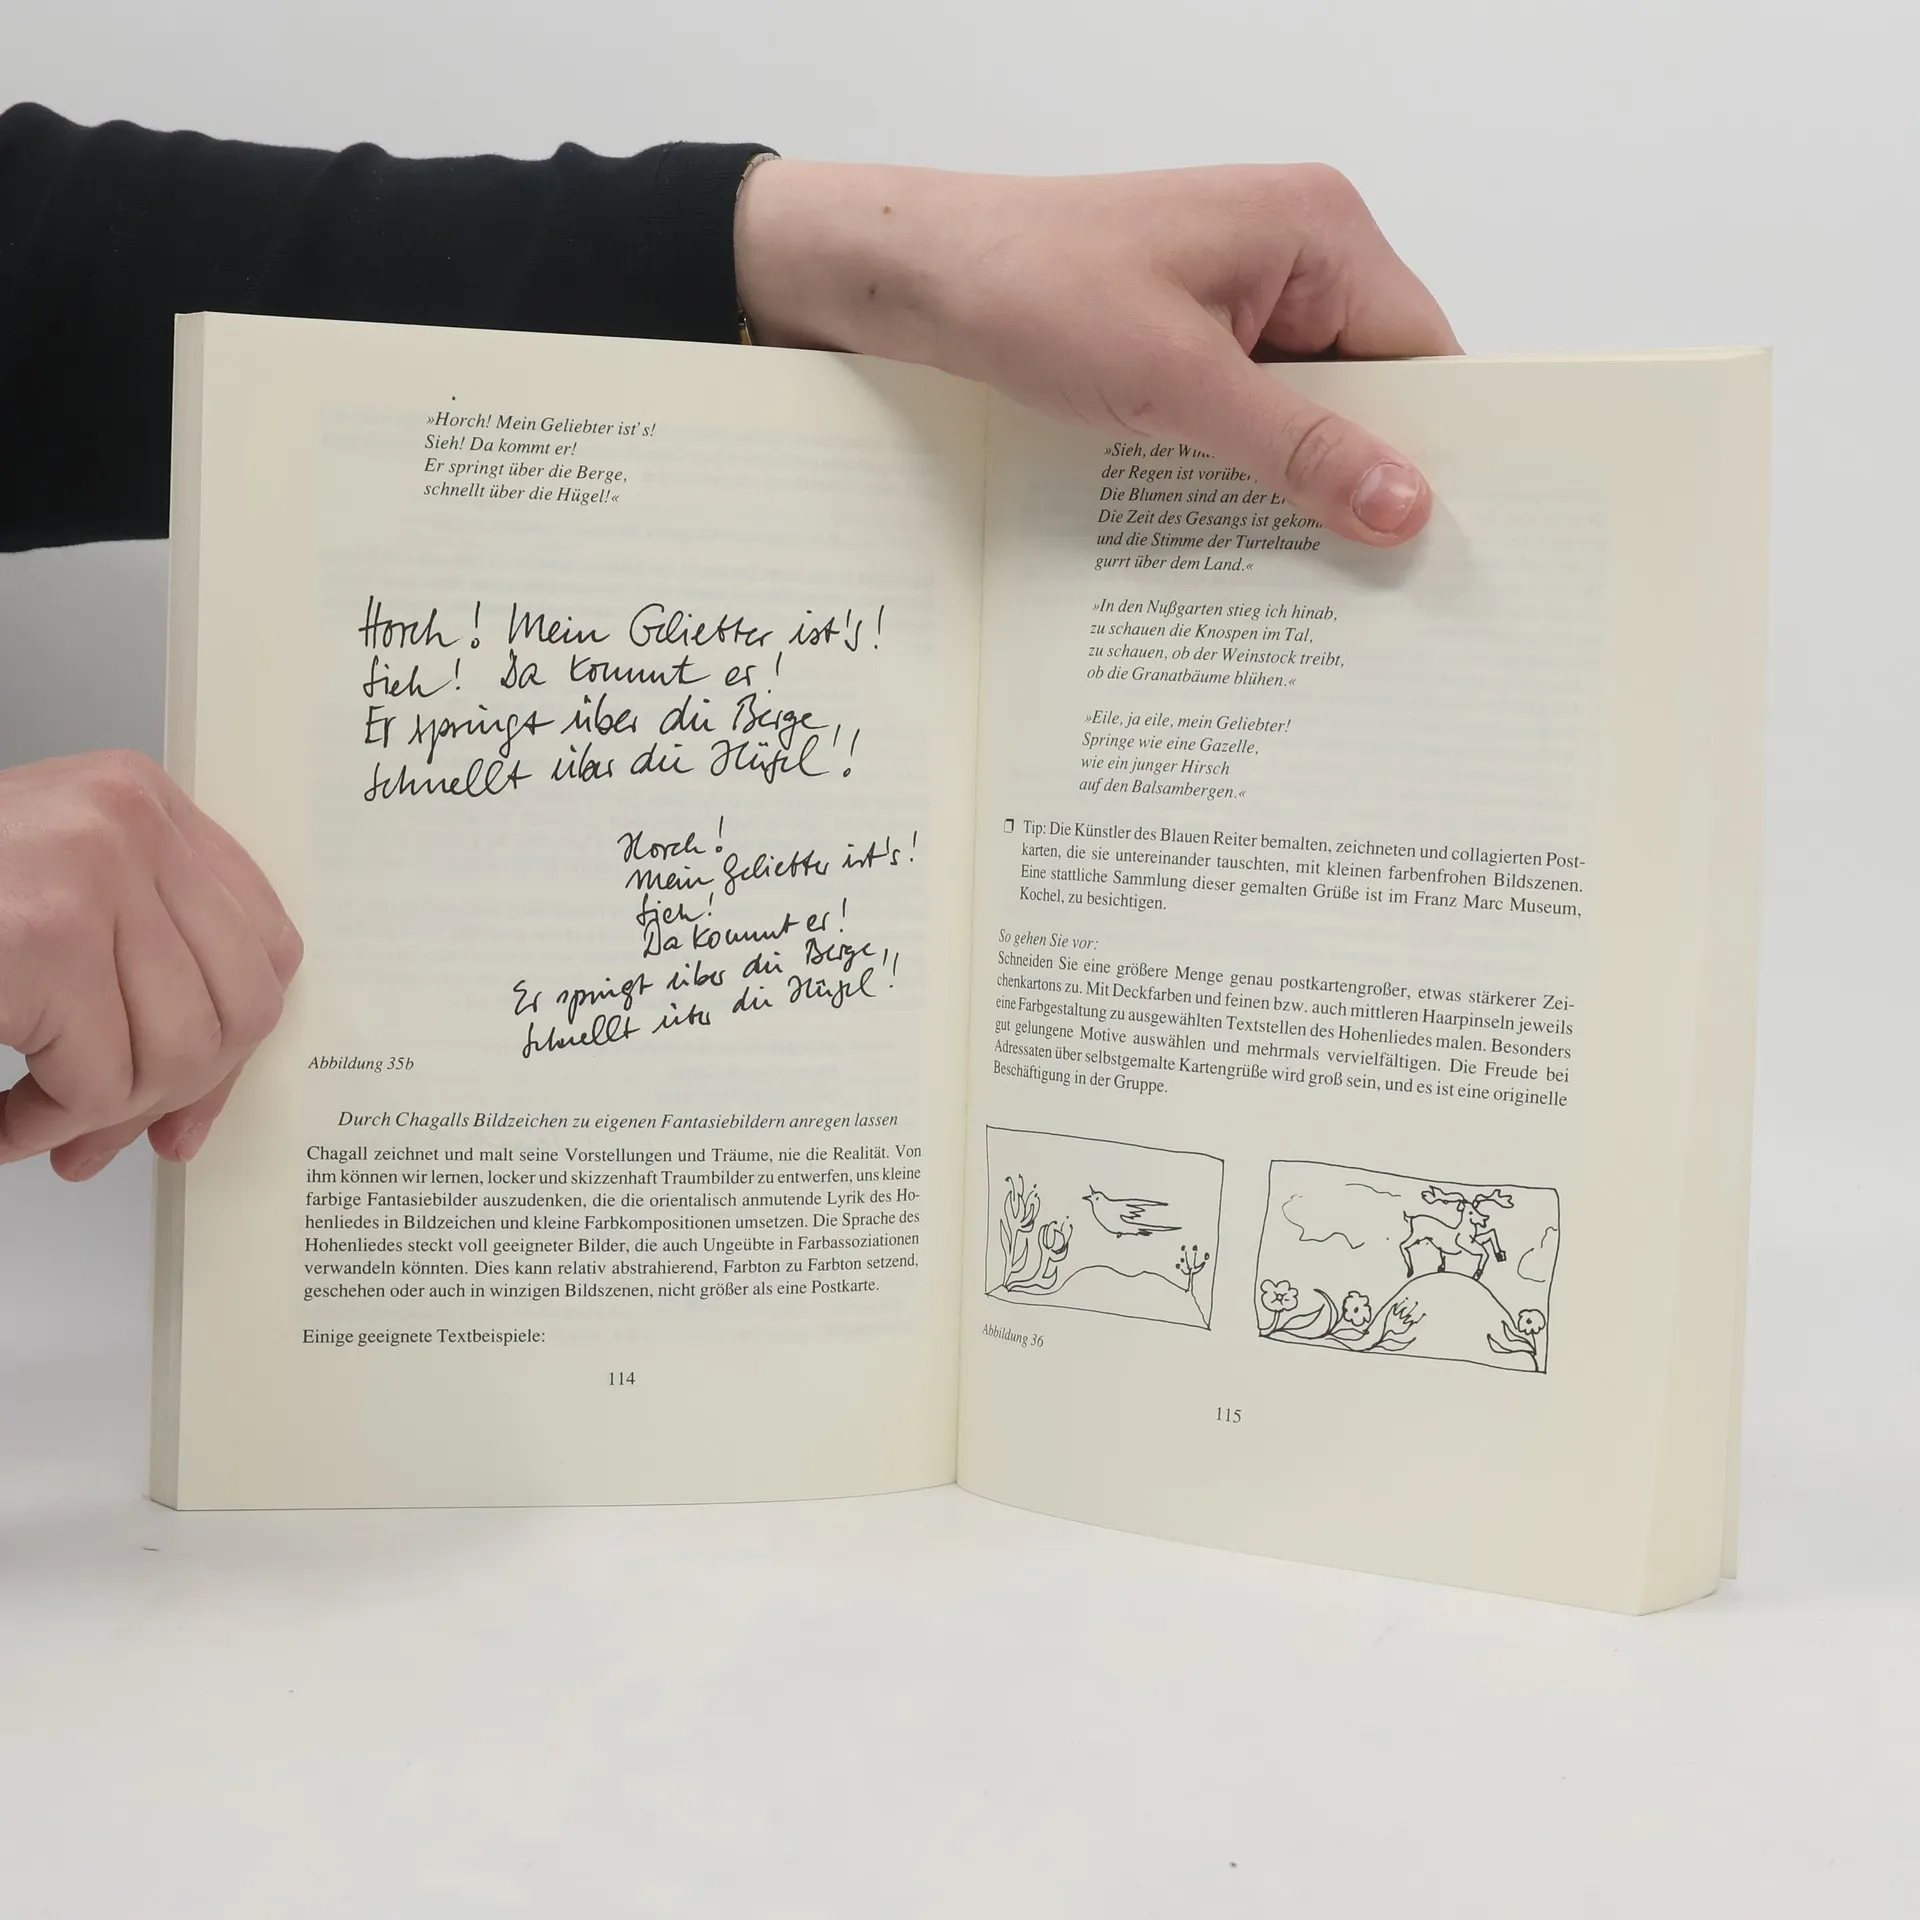 »Horch! Mein Geliebter ist's!
Sieh! Da kommt er!
Er springt über die Berge,
schnellt über die Hügel!«
Horch! Mein Geliebter ist's!
Sieh! Da kommt er!
Er springt über die Berge,
schnellt über die Hügel!
Horch!
Mein Geliebter ist's!
Sieh!
Da kommt er!
Er springt über die Berge,
schnellt über die Hügel!
Abbildung 35b
Durch Chagalls Bildzeichen zu eigenen Fantasiebildern anregen lassen
Chagall zeichnet und malt seine Vorstellungen und Träume, nie die Realität. Von
ihm können wir lernen, locker und skizzenhaft Traumbilder zu entwerfen, uns kleine
farbige Fantasiebilder auszudenken, die die orientalisch anmutende Lyrik des Ho-
henliedes in Bildzeichen und kleine Farbkompositionen umsetzen. Die Sprache des
Hohenliedes steckt voll geeigneter Bilder, die auch Ungeübte in Farbassoziationen
verwandeln könnten. Dies kann relativ abstrahierend, Farbton zu Farbton setzend,
geschehen oder auch in winzigen Bildszenen, nicht größer als eine Postkarte.
Einige geeignete Textbeispiele:
114
»Sieh, der
der Regen ist
Die Blumen sind an der
Die Zeit des Gesangs ist
und die Stimme der Turteltaube
gurrt über dem Land.«
»In den Nußgarten stieg ich hinab,
zu schauen die Knospen im Tal,
zu schauen, ob der Weinstock treibt,
ob die Granatbäume blühen.«
»Eile, ja eile, mein Geliebter!
Springe wie eine Gazelle,
wie ein junger Hirsch
auf den Balsambergen.«
❒ Tip: Die Künstler des Blauen Reiter bemalten, zeichneten und collagierten Post-
karten, die sie untereinander tauschten, mit kleinen farbenfrohen Bildszenen.
Eine stattliche Sammlung dieser gemalten Grüße ist im Franz Marc Museum,
Kochel, zu besichtigen.
So gehen Sie vor:
Schneiden Sie eine größere Menge genau postkartengroßer, etwas stärkerer Zei-
chenkartons zu. Mit Deckfarben und feinen bzw. auch mittleren Haarpinseln jeweils
eine Farbgestaltung zu ausgewählten Textstellen des Hohenliedes malen. Besonders
gut gelungene Motive auswählen und mehrmals vervielfältigen. Die Freude bei
Adressaten über selbstgemalte Kartengrüße wird groß sein, und es ist eine originelle
Beschäftigung in der Gruppe.
Abbildung 36
115